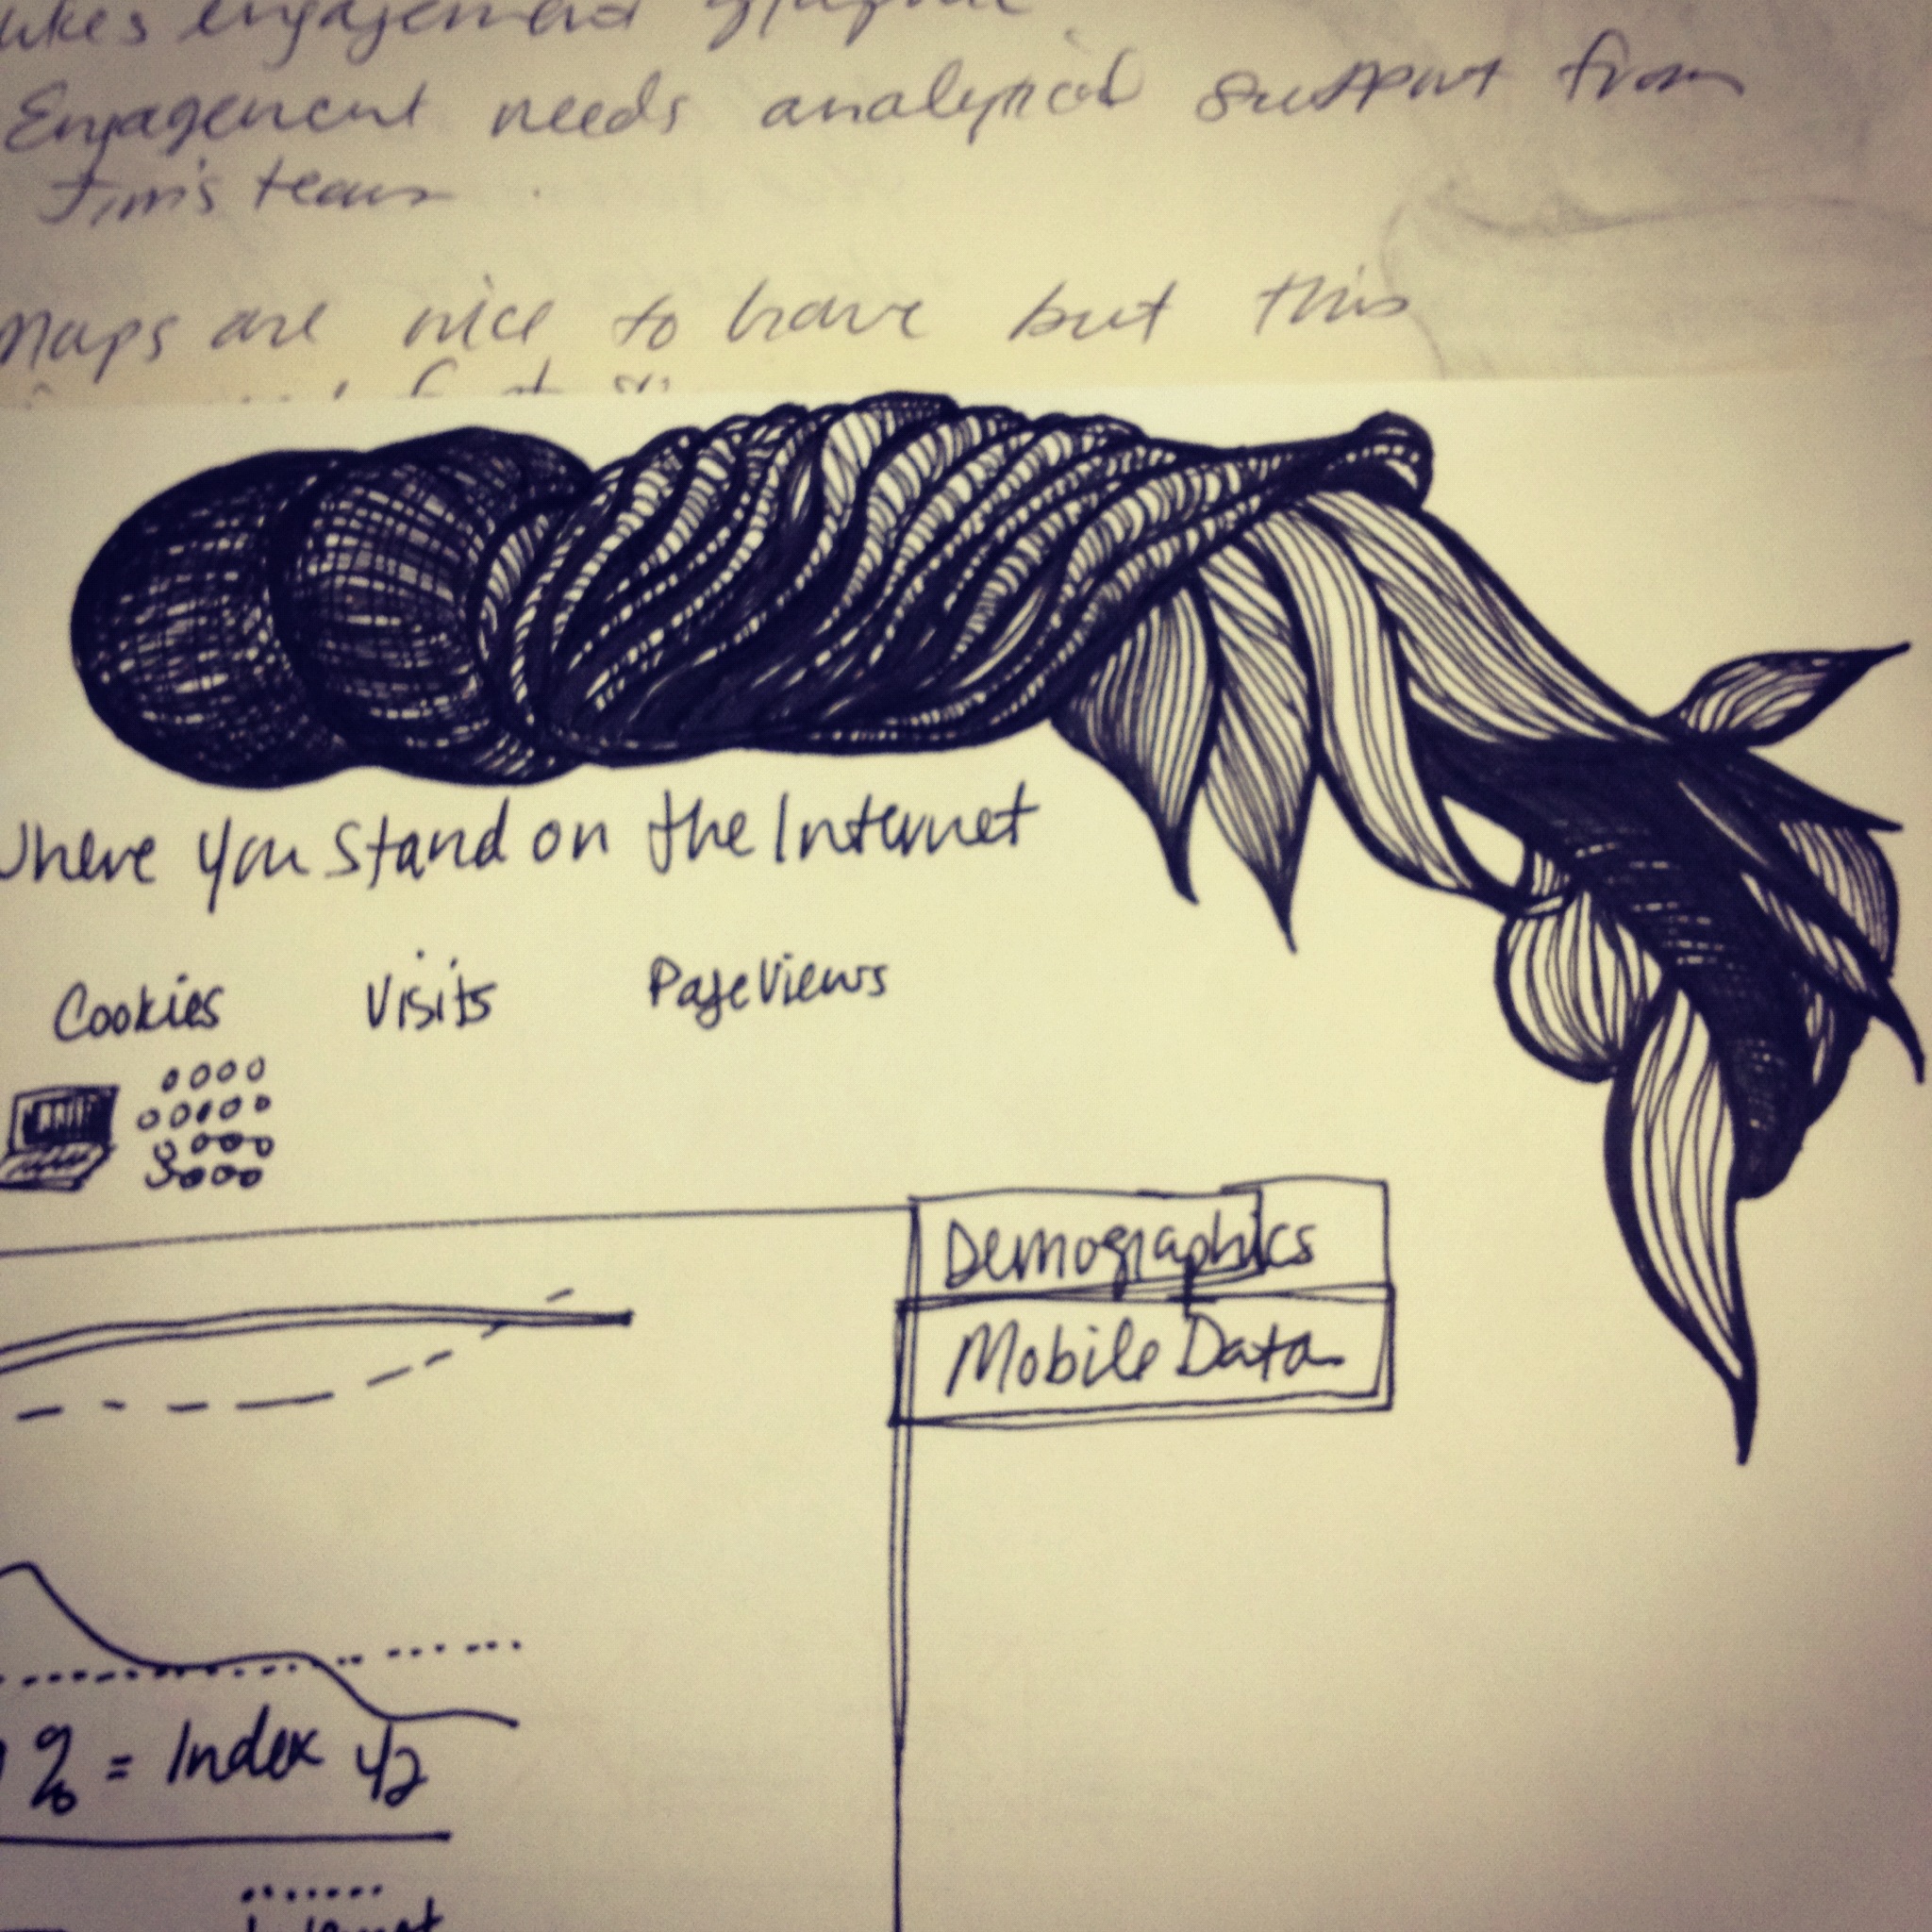 likes engagement graphic
Engagement needs analytical support from
Jim's team
Maps are nice to have but this
Where you stand on the Internet
Cookies Visits PageViews
Demographics
Mobile Data
% = Index 42
Internet